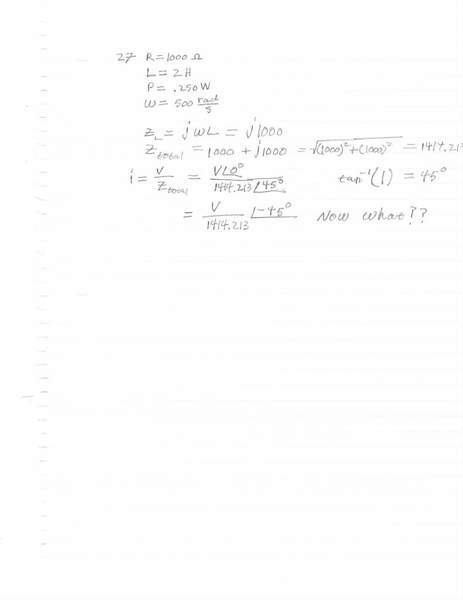 27 R = 1000 Ω
L = 2H
P = .250 W
ω = 500 rad/s
Z_L = jωL = j1000
Z_total = 1000 + j1000 = √((1000)² + (1000)²) = 1414.213
i = V/Z_total = V∠0°/1414.213∠45° tan⁻¹(1) = 45°
= V/1414.213 ∠-45° Now what??